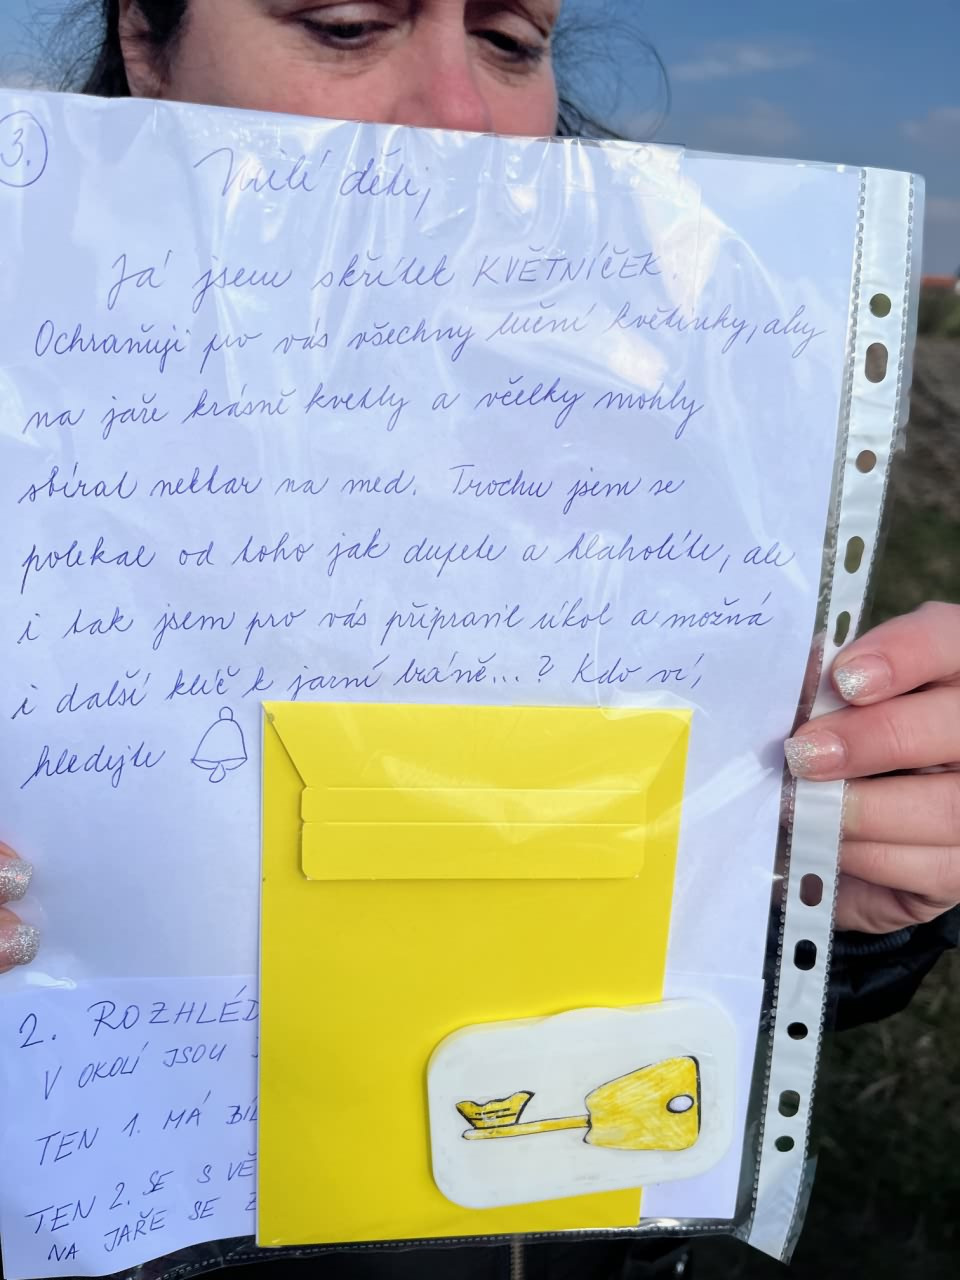 3.
Milí děti,
Já jsem skřítek KVĚTNÍČEK.
Ochraňuji pro vás všechny luční květinky, aby
na jaře krásně kvetly a včelky mohly
sbírat nektar na med. Trochu jsem se
polekal od toho jak dupete a hlaholíte, ale
i tak jsem pro vás připravil úkol a možná
i další klíč k jarní bráně...? Kdo ví,
hledejte
2. ROZHLÉD
V OKOLÍ JSOU
TEN 1. MÁ
TEN 2. SE S
NA JAŘE SE